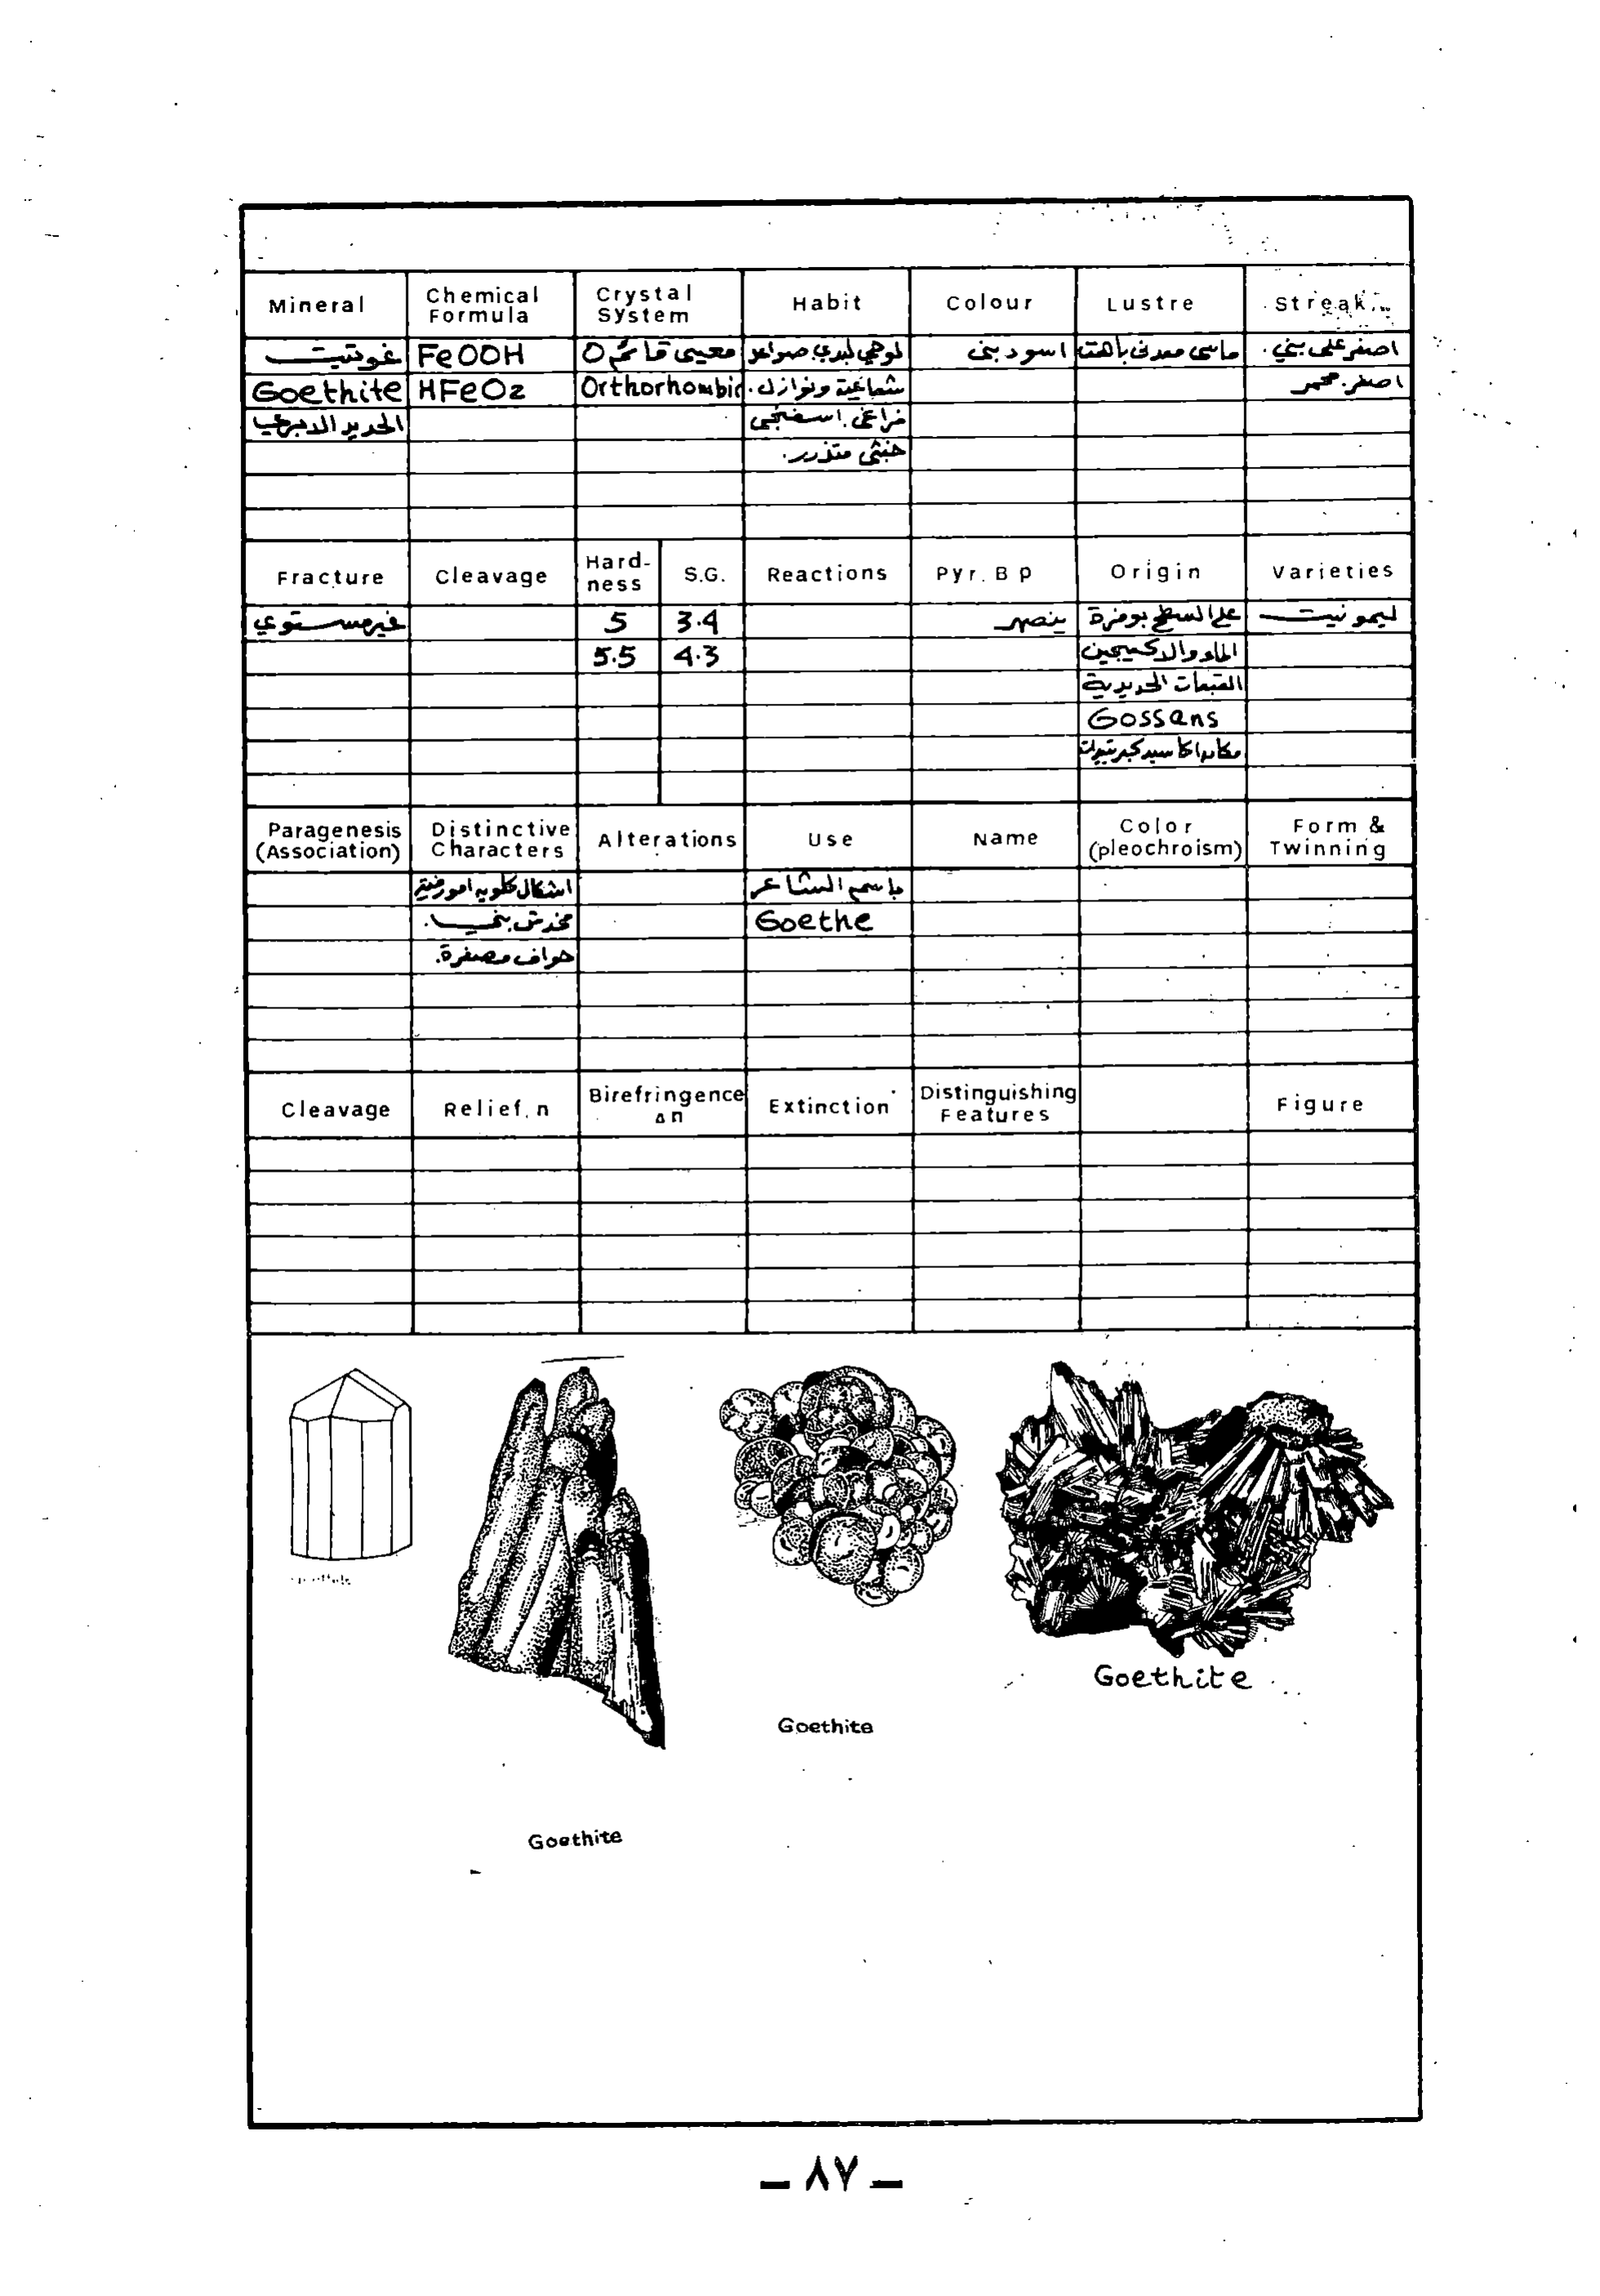 Mineral
Chemical Formula
Crystal System
Habit
Colour
Lustre
Streak
غوتيت
FeOOH
معيني قائم O
لوحي لبدي صواعد
اسود بني
ماسي معدني باهت
اصفر على بني.
Goethite
HFeO2
Orthorhombic
شعاعية ونوازل.
اصفر. محمر
الحديد الابري
فراغي. اسفنجي
خنثي متذرر.
Fracture
Cleavage
Hard-ness
S.G.
Reactions
Pyr. B p
Origin
Varieties
غير مستوي
5
3.4
ينصهر
على السطح بوفرة
ليمونيت
5.5
4.3
الماء والاكسيجين
القبعات الحديدية
Gossans
Paragenesis (Association)
Distinctive Characters
Alterations
Use
Name
Color (pleochroism)
Form & Twinning
اشكال كلويه
باسم الشاعر
Goethe
حواف مصفرة.
Cleavage
Relief, n
Birefringence Δn
Extinction
Distinguishing Features
Figure
Goethite
Goethite
Goethite
ـ ٨٧ ـ